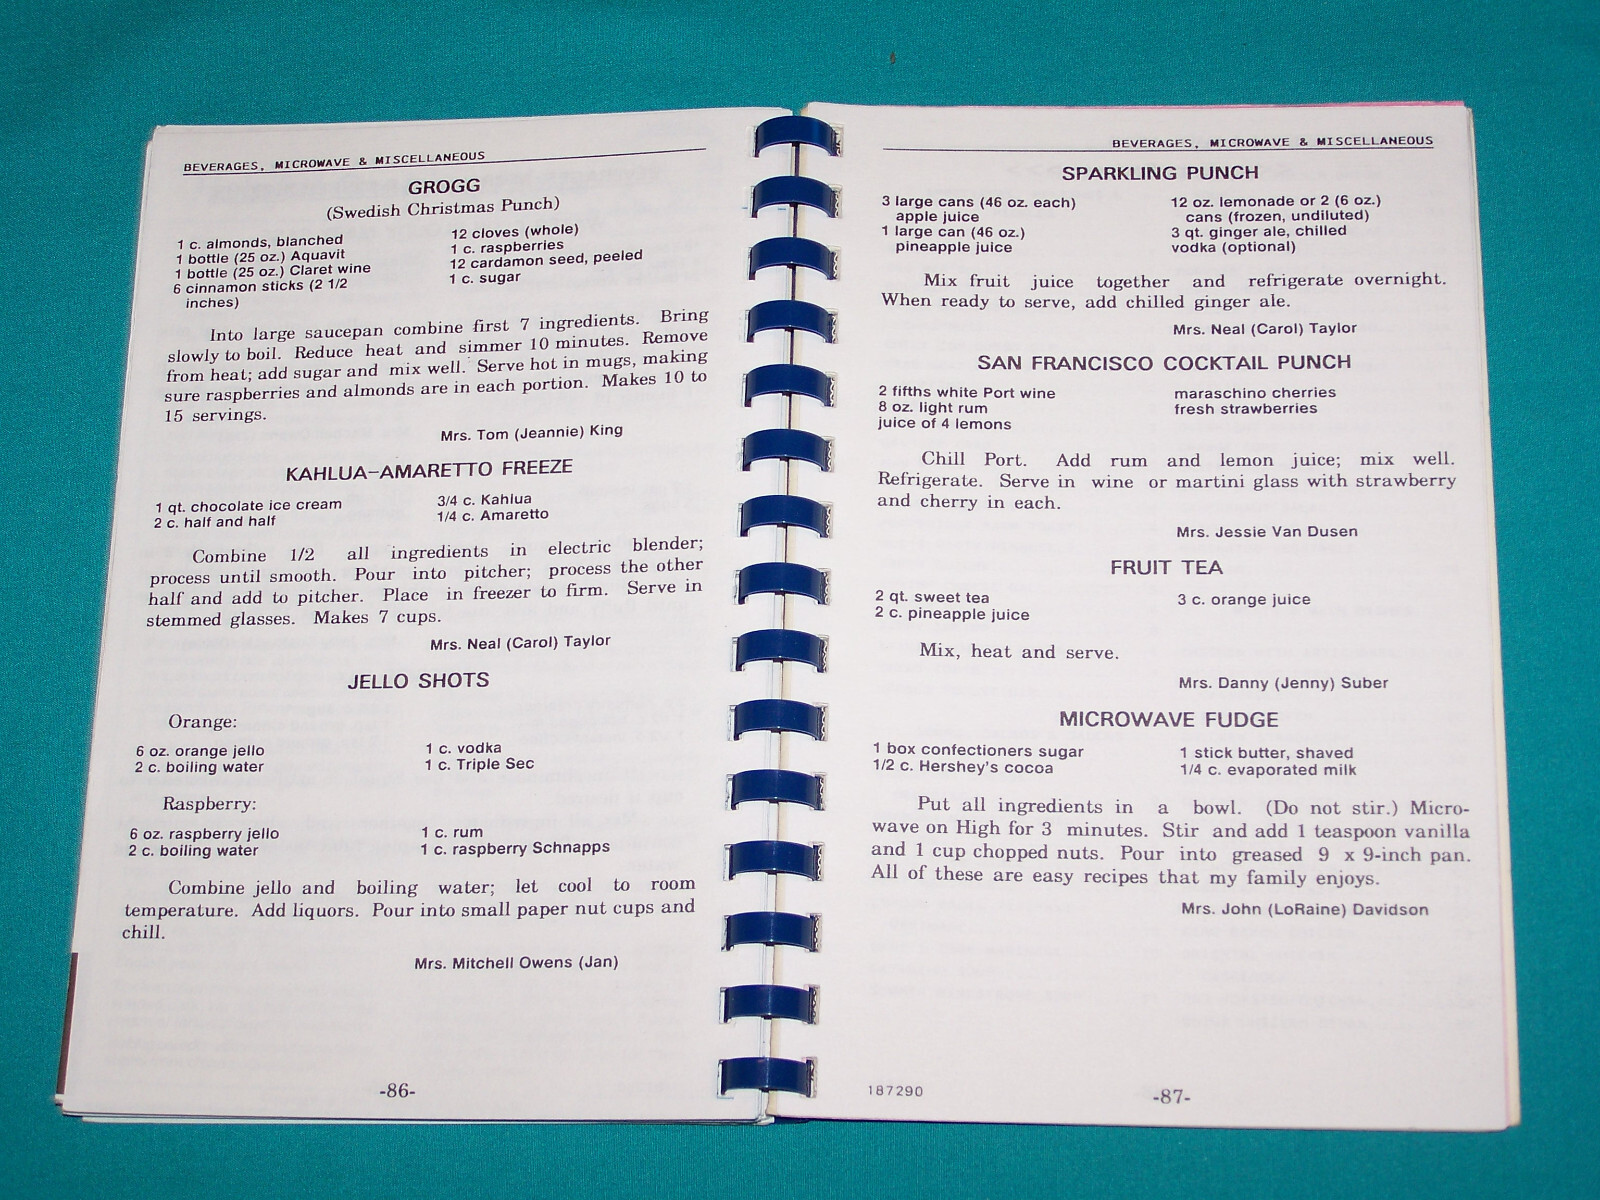 BEVERAGES, MICROWAVE & MISCELLANEOUS
GROGG
(Swedish Christmas Punch)
1 c. almonds, blanched
1 bottle (25 oz.) Aquavit
1 bottle (25 oz.) Claret wine
6 cinnamon sticks (2 1/2
inches)
12 cloves (whole)
1 c. raspberries
12 cardamon seed, peeled
1 c. sugar
Into large saucepan combine first 7 ingredients. Bring
slowly to boil. Reduce heat and simmer 10 minutes. Remove
from heat; add sugar and mix well. Serve hot in mugs, making
sure raspberries and almonds are in each portion. Makes 10 to
15 servings.
Mrs. Tom (Jeannie) King
KAHLUA-AMARETTO FREEZE
1 qt. chocolate ice cream
2 c. half and half
3/4 c. Kahlua
1/4 c. Amaretto
Combine 1/2 all ingredients in electric blender;
process until smooth. Pour into pitcher; process the other
half and add to pitcher. Place in freezer to firm. Serve in
stemmed glasses. Makes 7 cups.
Mrs. Neal (Carol) Taylor
JELLO SHOTS
Orange:
6 oz. orange jello
2 c. boiling water
1 c. vodka
1 c. Triple Sec
Raspberry:
6 oz. raspberry jello
2 c. boiling water
1 c. rum
1 c. raspberry Schnapps
Combine jello and boiling water; let cool to room
temperature. Add liquors. Pour into small paper nut cups and
chill.
Mrs. Mitchell Owens (Jan)
-86-
BEVERAGES, MICROWAVE & MISCELLANEOUS
SPARKLING PUNCH
3 large cans (46 oz. each)
apple juice
1 large can (46 oz.)
pineapple juice
12 oz. lemonade or 2 (6 oz.)
cans (frozen, undiluted)
3 qt. ginger ale, chilled
vodka (optional)
Mix fruit juice together and refrigerate overnight.
When ready to serve, add chilled ginger ale.
Mrs. Neal (Carol) Taylor
SAN FRANCISCO COCKTAIL PUNCH
2 fifths white Port wine
8 oz. light rum
juice of 4 lemons
maraschino cherries
fresh strawberries
Chill Port. Add rum and lemon juice; mix well.
Refrigerate. Serve in wine or martini glass with strawberry
and cherry in each.
Mrs. Jessie Van Dusen
FRUIT TEA
2 qt. sweet tea
2 c. pineapple juice
3 c. orange juice
Mix, heat and serve.
Mrs. Danny (Jenny) Suber
MICROWAVE FUDGE
1 box confectioners sugar
1/2 c. Hershey's cocoa
1 stick butter, shaved
1/4 c. evaporated milk
Put all ingredients in a bowl. (Do not stir.) Micro-
wave on High for 3 minutes. Stir and add 1 teaspoon vanilla
and 1 cup chopped nuts. Pour into greased 9 x 9-inch pan.
All of these are easy recipes that my family enjoys.
Mrs. John (LoRaine) Davidson
187290
-87-